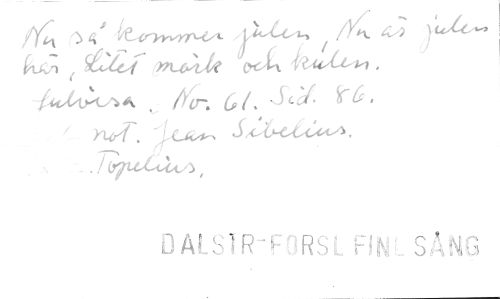 Nu så kommer julen, Nu är julen
här, Litet mörk och kulen.
Julvisa. No. 61. Sid. 86.
not. Jean Sibelius.
Topelius.
DALSTR-FORSL FINL SÅNG